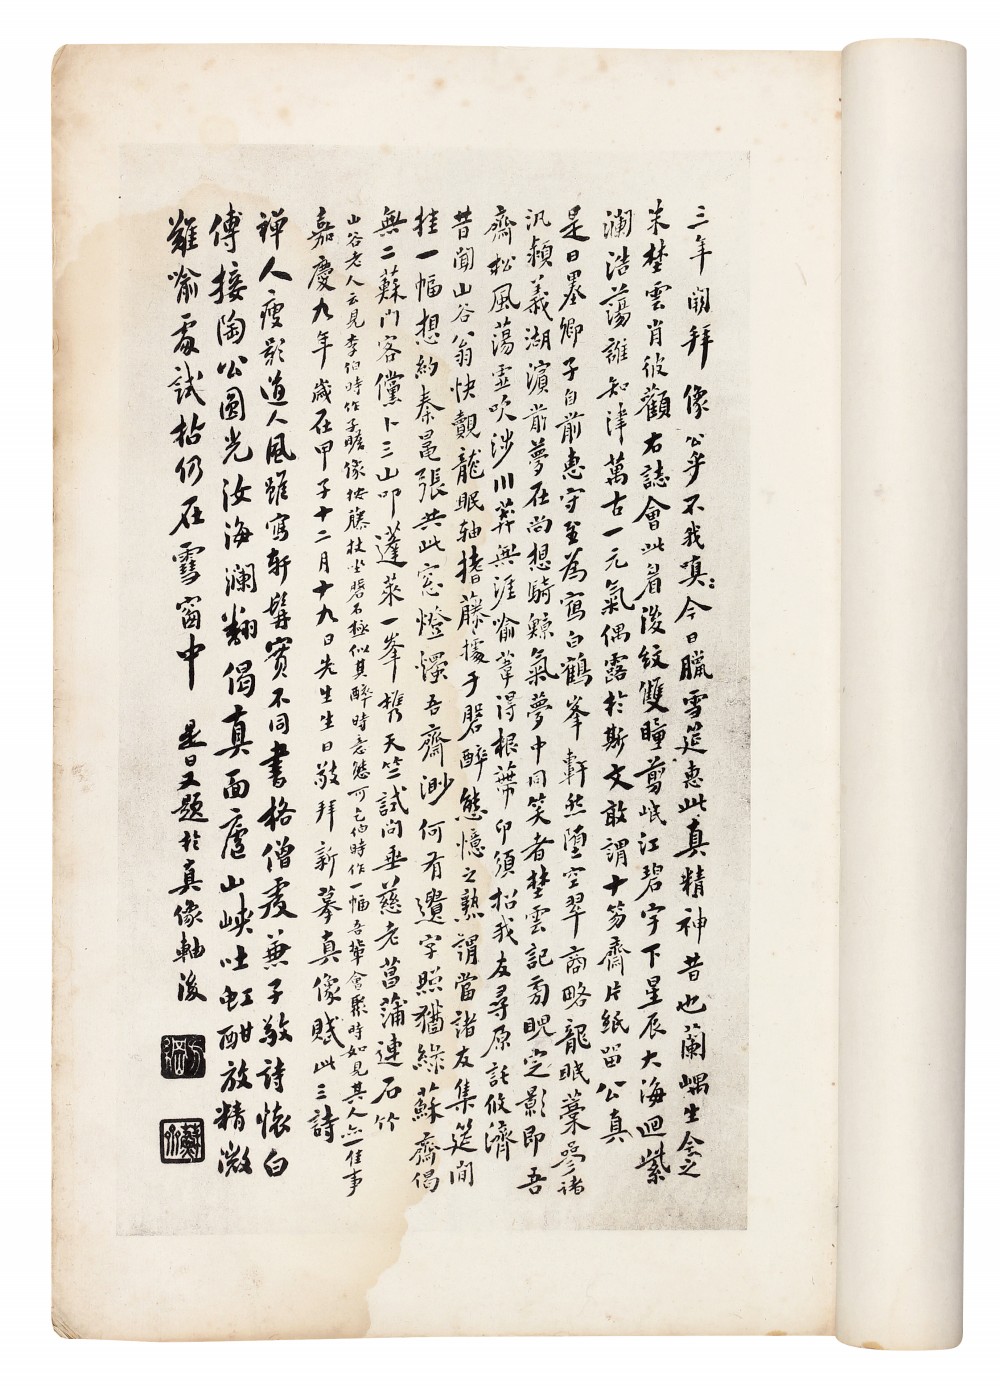 三年閒拜像公乎不我嗔:今日臘雪筵惠此真精神昔也蘭嵎生会之
朱埜雲肖彼顴右誌會此眉浚紋雙瞳剪岷江碧字下星辰大海迴紫
瀾浩蕩誰知津萬古一元氣偶露於斯文敢謂十笏齋片紙留公真
是日墨卿子自前惠守至為寫白鶴峯軒然墮空翠商略龍眠藁參諸
汎潁義湖濱前夢在尚想騎鯨氣夢中同笑者埜雲記芻睨定影即吾
齋松風蕩雲吹涉川莽無涯喻葦得根蒂卬須招我友尋原託攸濟
昔聞山谷翁快觀龍眠軸搘藤據于磐醉態憶之熟謂當諸友集筵間
挂一幅想約秦鼂張共此窓燈燭吾齋渺何有遺字照猶綠蘇齋偈
無二蘇門客儻卜三山叩蓬萊一峯攜天竺試問垂慈老菖蒲連石竹
山谷老人云見李伯時作子瞻像按藤杖坐磐石極似其醉時意態可乞伯時作一幅吾輩會聚時如見其人亦一佳事
嘉慶九年歲在甲子十二月十九日先生生日敬拜新摹真像賦此三詩
禪人瘦影道人風雖寫軒髯實不同書格僧虔兼子敬詩懷白
傅接陶公圓光汝海瀾翻偈真面廬山峽吐虹酣放精微
難喻處試拈仍在雪窗中 是日又題於真像軸後
方綱